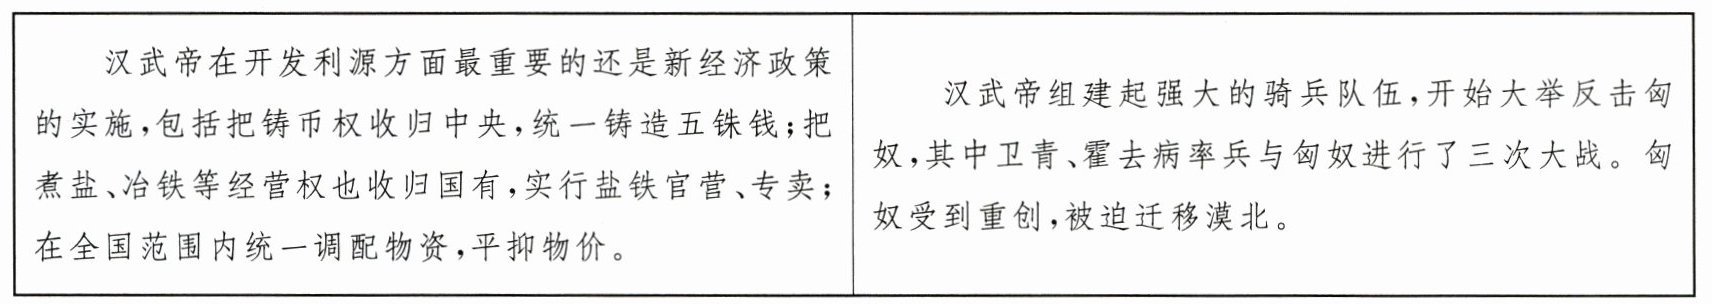 汉武帝在开发利源方面最重要的还是新经济政策
的实施,包括把铸币权收归中央,统一铸造五铢钱;把
煮盐、冶铁等经营权也收归国有,实行盐铁官营、专卖;
在全国范围内统一调配物资,平抑物价。
汉武帝组建起强大的骑兵队伍,开始大举反击匈
奴,其中卫青、霍去病率兵与匈奴进行了三次大战。匈
奴受到重创,被迫迁移漠北。